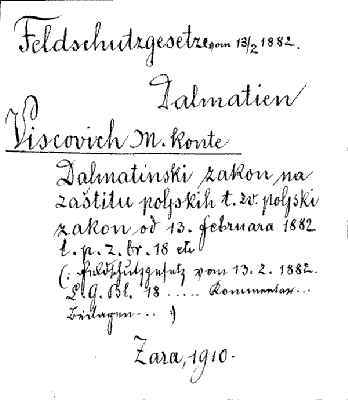 Feldschutzgesetz vom 13/2 1882.
Dalmatien
Viscovich M. Konte
Dalmatinski zakon na
zaštitu poljskih t. zv. poljski
zakon od 13. februara 1882
l. p. z. br. 18 etc
(: Feldschutzgesetz vom 13. 2. 1882.
L. G. Bl. 18 ..... Kommentar...
Beilagen... )
Zara, 1910.